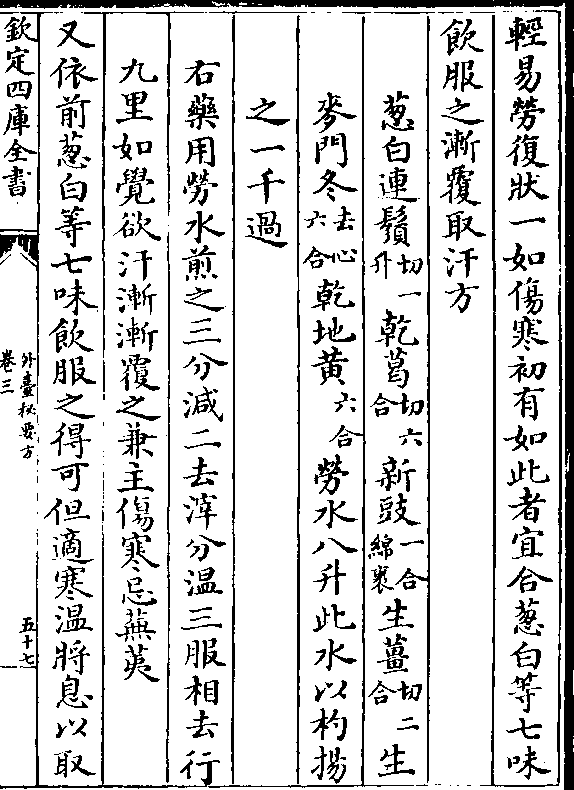 輕易勞復狀一如傷寒初有如此者宜合葱白等七味
飲服之漸覆取汗方
葱白連鬚切一升 乾葛切六合 新豉一合綿裹 生薑切二合 生
麥門冬去心六合 乾地黄六合 勞水八升此水以杓揚
之一千過
右藥用勞水煎之三分減二去滓分温三服相去行
九里如覺欲汗漸漸覆之兼主傷寒忌蕪荑
又依前葱白等七味飲服之得可但適寒温將息以取
欽定四庫全書
外臺秘要方
卷三
五十七